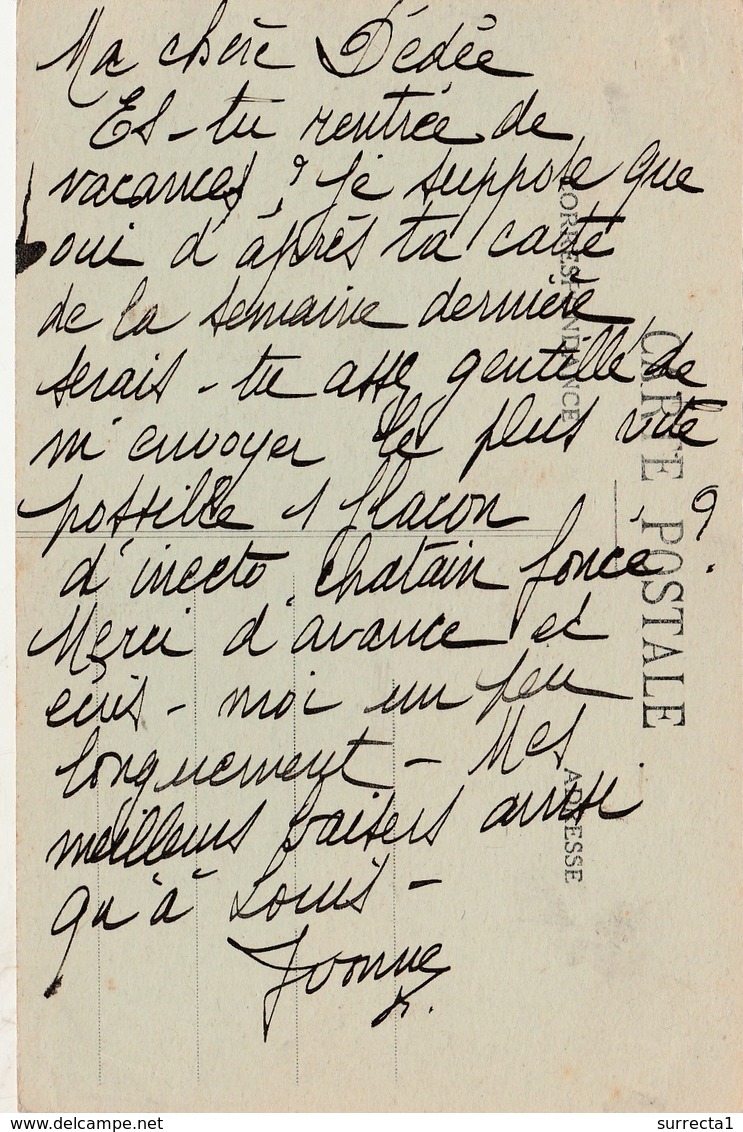 Ma chère Dédée
Es-tu rentrée de
vacances ? je suppose que
oui d'après ta carte
de la semaine dernière
serais-tu assez gentille de
m'envoyer le plus vite
possible 1 flacon
d'inecto chatain foncé ?
Merci d'avance et
écris-moi un peu
longuement - Mes
meilleurs baisers ainsi
qu'à Louis -
Yvonne
CORRESPONDANCE
CARTE POSTALE
ADRESSE
delcampe.net
surrecta1